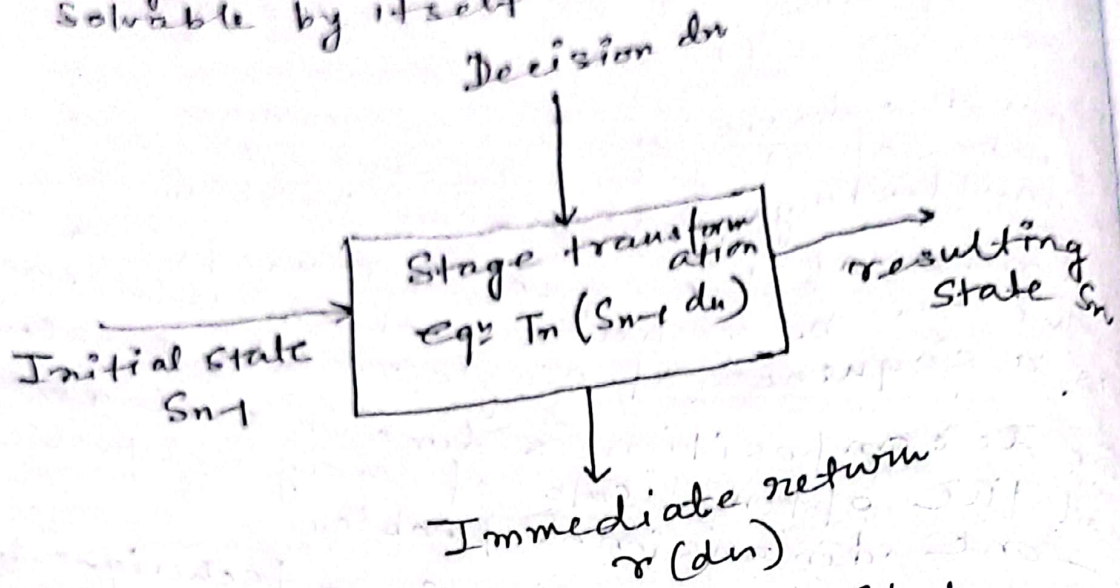 Solvable by itself
Decision dn
Stage transform
ation
eqn Tn (Sn-1 dn)
resulting
state Sn
Initial state
Sn-1
Immediate return
r (dn)